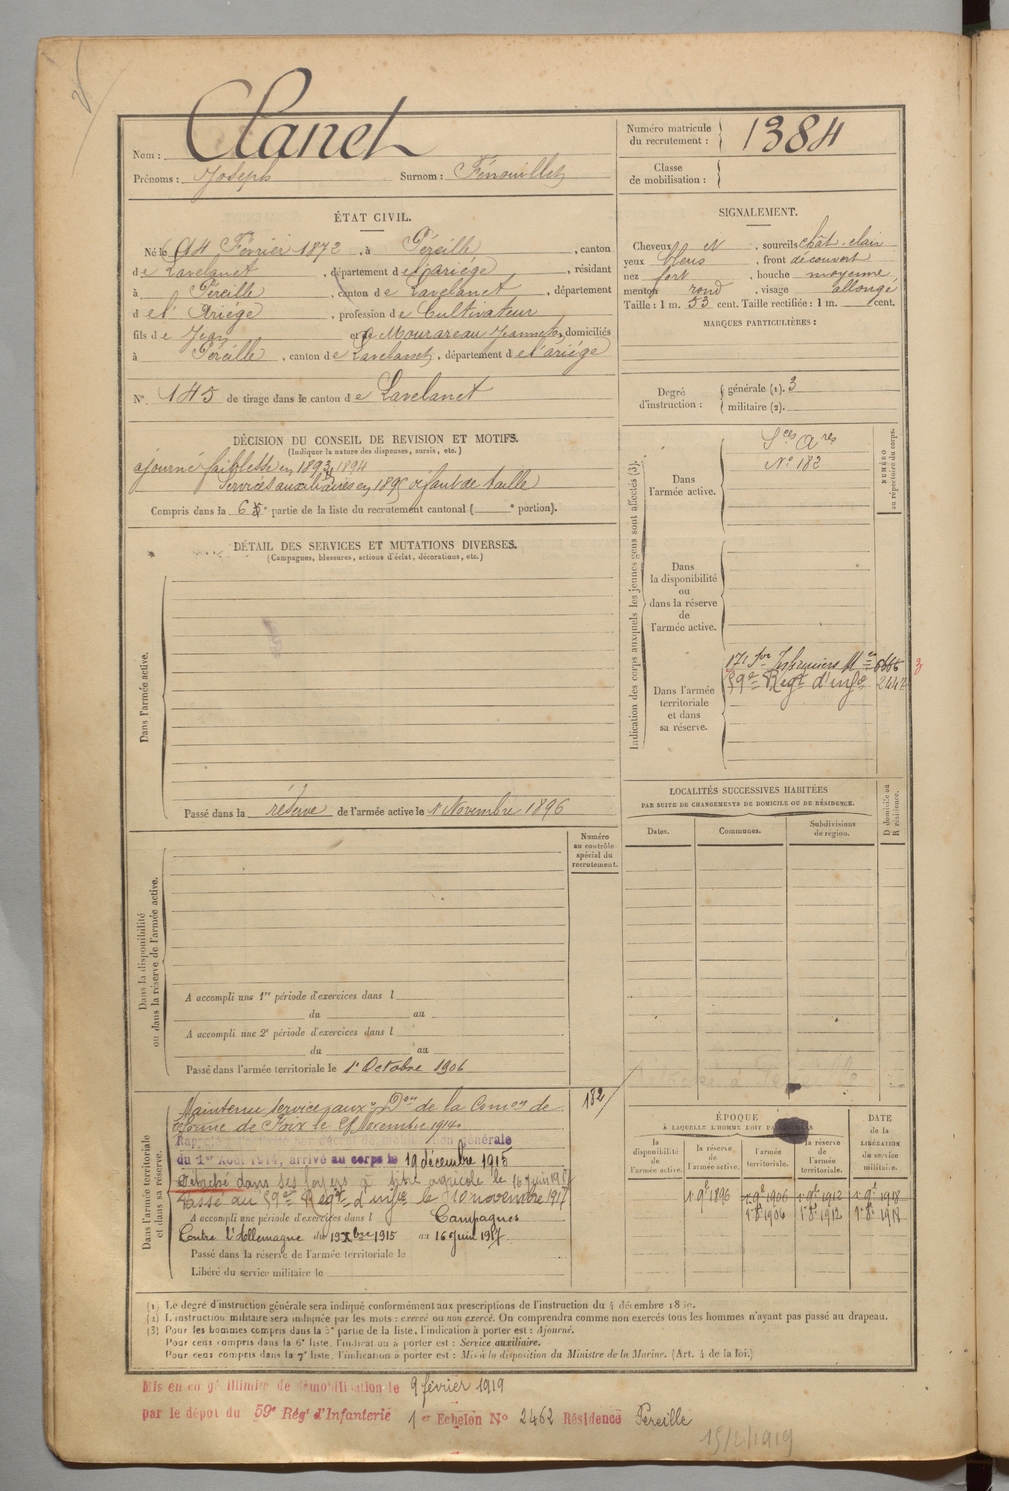 Nom : Clanet
Prénoms : Joseph Surnom : Fénouillet
Numéro matricule du recrutement : 1384
Classe de mobilisation :
ÉTAT CIVIL.
Né le 14 Février 1872, à Péreille, canton
de Lavelanet, département de l'ariège, résidant
à Péreille, canton de Lavelanet, département
de l'Ariège, profession de Cultivateur
fils de Jean et de Mourareau Jeanne, domiciliés
à Péreille, canton de Lavelanet, département de l'ariège
N° 145 de tirage dans le canton de Lavelanet
SIGNALEMENT.
Cheveux N, sourcils chât-clair
yeux bleus, front découvert
nez fort, bouche moyenne
menton rond, visage allongé
Taille : 1 m. 53 cent. Taille rectifiée : 1 m. cent.
MARQUES PARTICULIÈRES :
Degré d'instruction : générale (1). 3
militaire (2).
DÉCISION DU CONSEIL DE REVISION ET MOTIFS.
(Indiquer la nature des dispenses, sursis, etc.)
ajourné faiblesse en 1893, 1894
Services auxiliaires en 1895 défaut de taille
Compris dans la 6e partie de la liste du recrutement cantonal ( e portion).
DÉTAIL DES SERVICES ET MUTATIONS DIVERSES.
(Campagnes, blessures, actions d'éclat, décorations, etc.)
Dans l'armée active.
Passé dans la réserve de l'armée active le 1 Novembre 1896
Indication des corps auxquels les jeunes gens sont affectés (3).
NUMÉRO au répertoire du corps.
Dans l'armée active.
Sces Ares
N° 182
Dans la disponibilité ou dans la réserve de l'armée active.
Dans l'armée territoriale et dans sa réserve.
17e Son Infirmiers Mres 6666 3
59e Régt d'infie 2447
LOCALITÉS SUCCESSIVES HABITÉES
PAR SUITE DE CHANGEMENTS DE DOMICILE OU DE RÉSIDENCE.
Dates. Communes. Subdivisions de région. D domicile ou R résidence.
Numéro au contrôle spécial du recrutement.
Dans la disponibilité ou dans la réserve de l'armée active.
A accompli une 1re période d'exercices dans l
du au
A accompli une 2e période d'exercices dans l
du au
Passé dans l'armée territoriale le 1er Octobre 1906
Dans l'armée territoriale et dans sa réserve.
182
Maintenu service auxre Don de la Comon de
réforme de Foix le Novembre 1914.
Rappelé mobilisation générale
du 1er Août 1914, arrivé au corps le 19 décembre 1915
Détaché dans ses foyers à titre agricole le 16 juin 1917
Passé au 59e Régt d'infie le 10 novembre 1917
A accompli une période d'exercices dans l Campagnes
Contre l'Allemagne du 19 Xbre 1915 au 16 Juin 1917.
Passé dans la réserve de l'armée territoriale le
Libéré du service militaire le
ÉPOQUE
À LAQUELLE L'HOMME DOIT PASSER DANS
la disponibilité de l'armée active. la réserve de l'armée active. l'armée territoriale. la réserve de l'armée territoriale.
DATE de la LIBÉRATION du service militaire.
1 9e 1896 1 9e 1906 1 9e 1912 1 9e 1918
1er 8e 1906 1er 8e 1912 1er 8e 1918
(1) Le degré d'instruction générale sera indiqué conformément aux prescriptions de l'instruction du 4 décembre 18
(2) L'instruction militaire sera indiquée par les mots : exercé ou non exercé. On comprendra comme non exercés tous les hommes n'ayant pas passé au drapeau.
(3) Pour les hommes compris dans la 5e partie de la liste, l'indication à porter est : Ajourné.
Pour ceux compris dans la 6e liste, l'indication à porter est : Service auxiliaire.
Pour ceux compris dans la 7e liste, l'indication à porter est : Mis à la disposition du Ministre de la Marine. (Art. 4 de la loi.)
Mis en congé illimité de démobilisation le 9 février 1919
par le dépôt du 59e Régt d'Infanterie 1er Echelon N° 2462 Résidence Péreille
15/2/1919